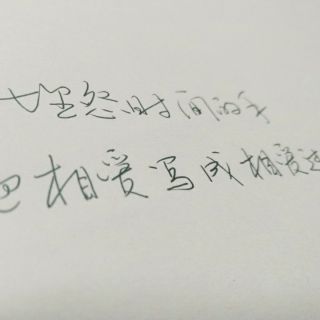 埋怨时间的手
把相爱写成相爱过